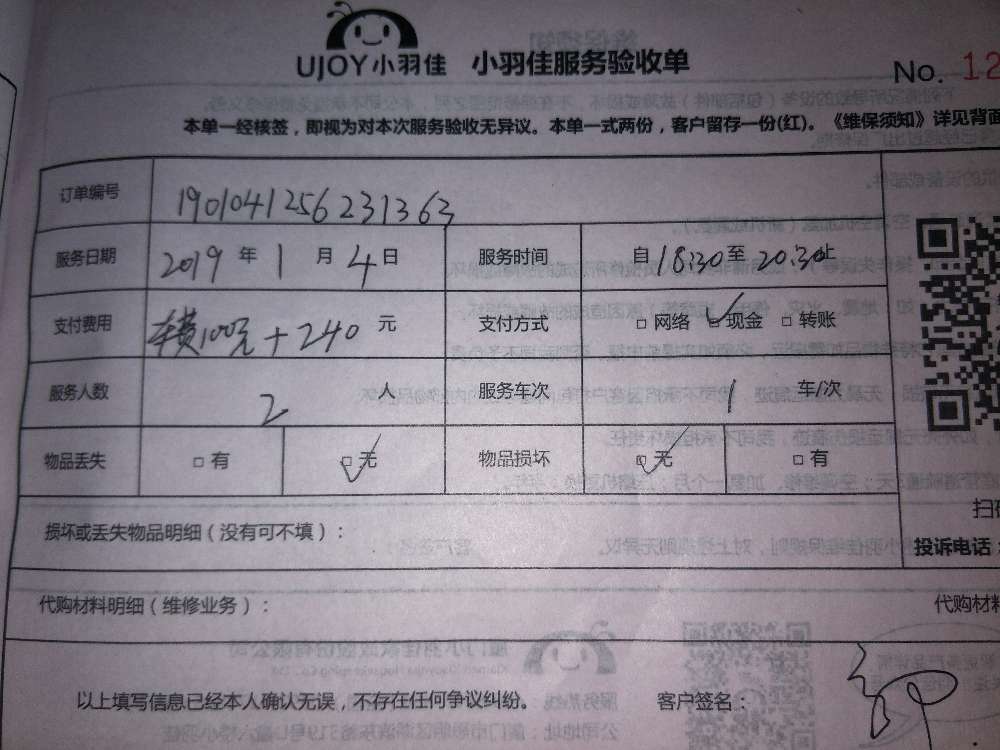 UJOY小羽佳 小羽佳服务验收单
No. 12
本单一经核签，即视为对本次服务验收无异议。本单一式两份，客户留存一份(红)。《维保须知》详见背面
订单编号 1901041256231363
服务日期 2019 年 1 月 4 日 服务时间 自 18:30 至 20:30 止
支付费用 车费100元+240 元 支付方式 □ 网络 □ 现金 □ 转账
服务人数 2 人 服务车次 1 车/次
物品丢失 □ 有 □ 无 物品损坏 □ 无 □ 有
扫
损坏或丢失物品明细（没有可不填）：
投诉电话：
代购材料明细（维修业务）： 代购材料
以上填写信息已经本人确认无误，不存在任何争议纠纷。 客户签名：